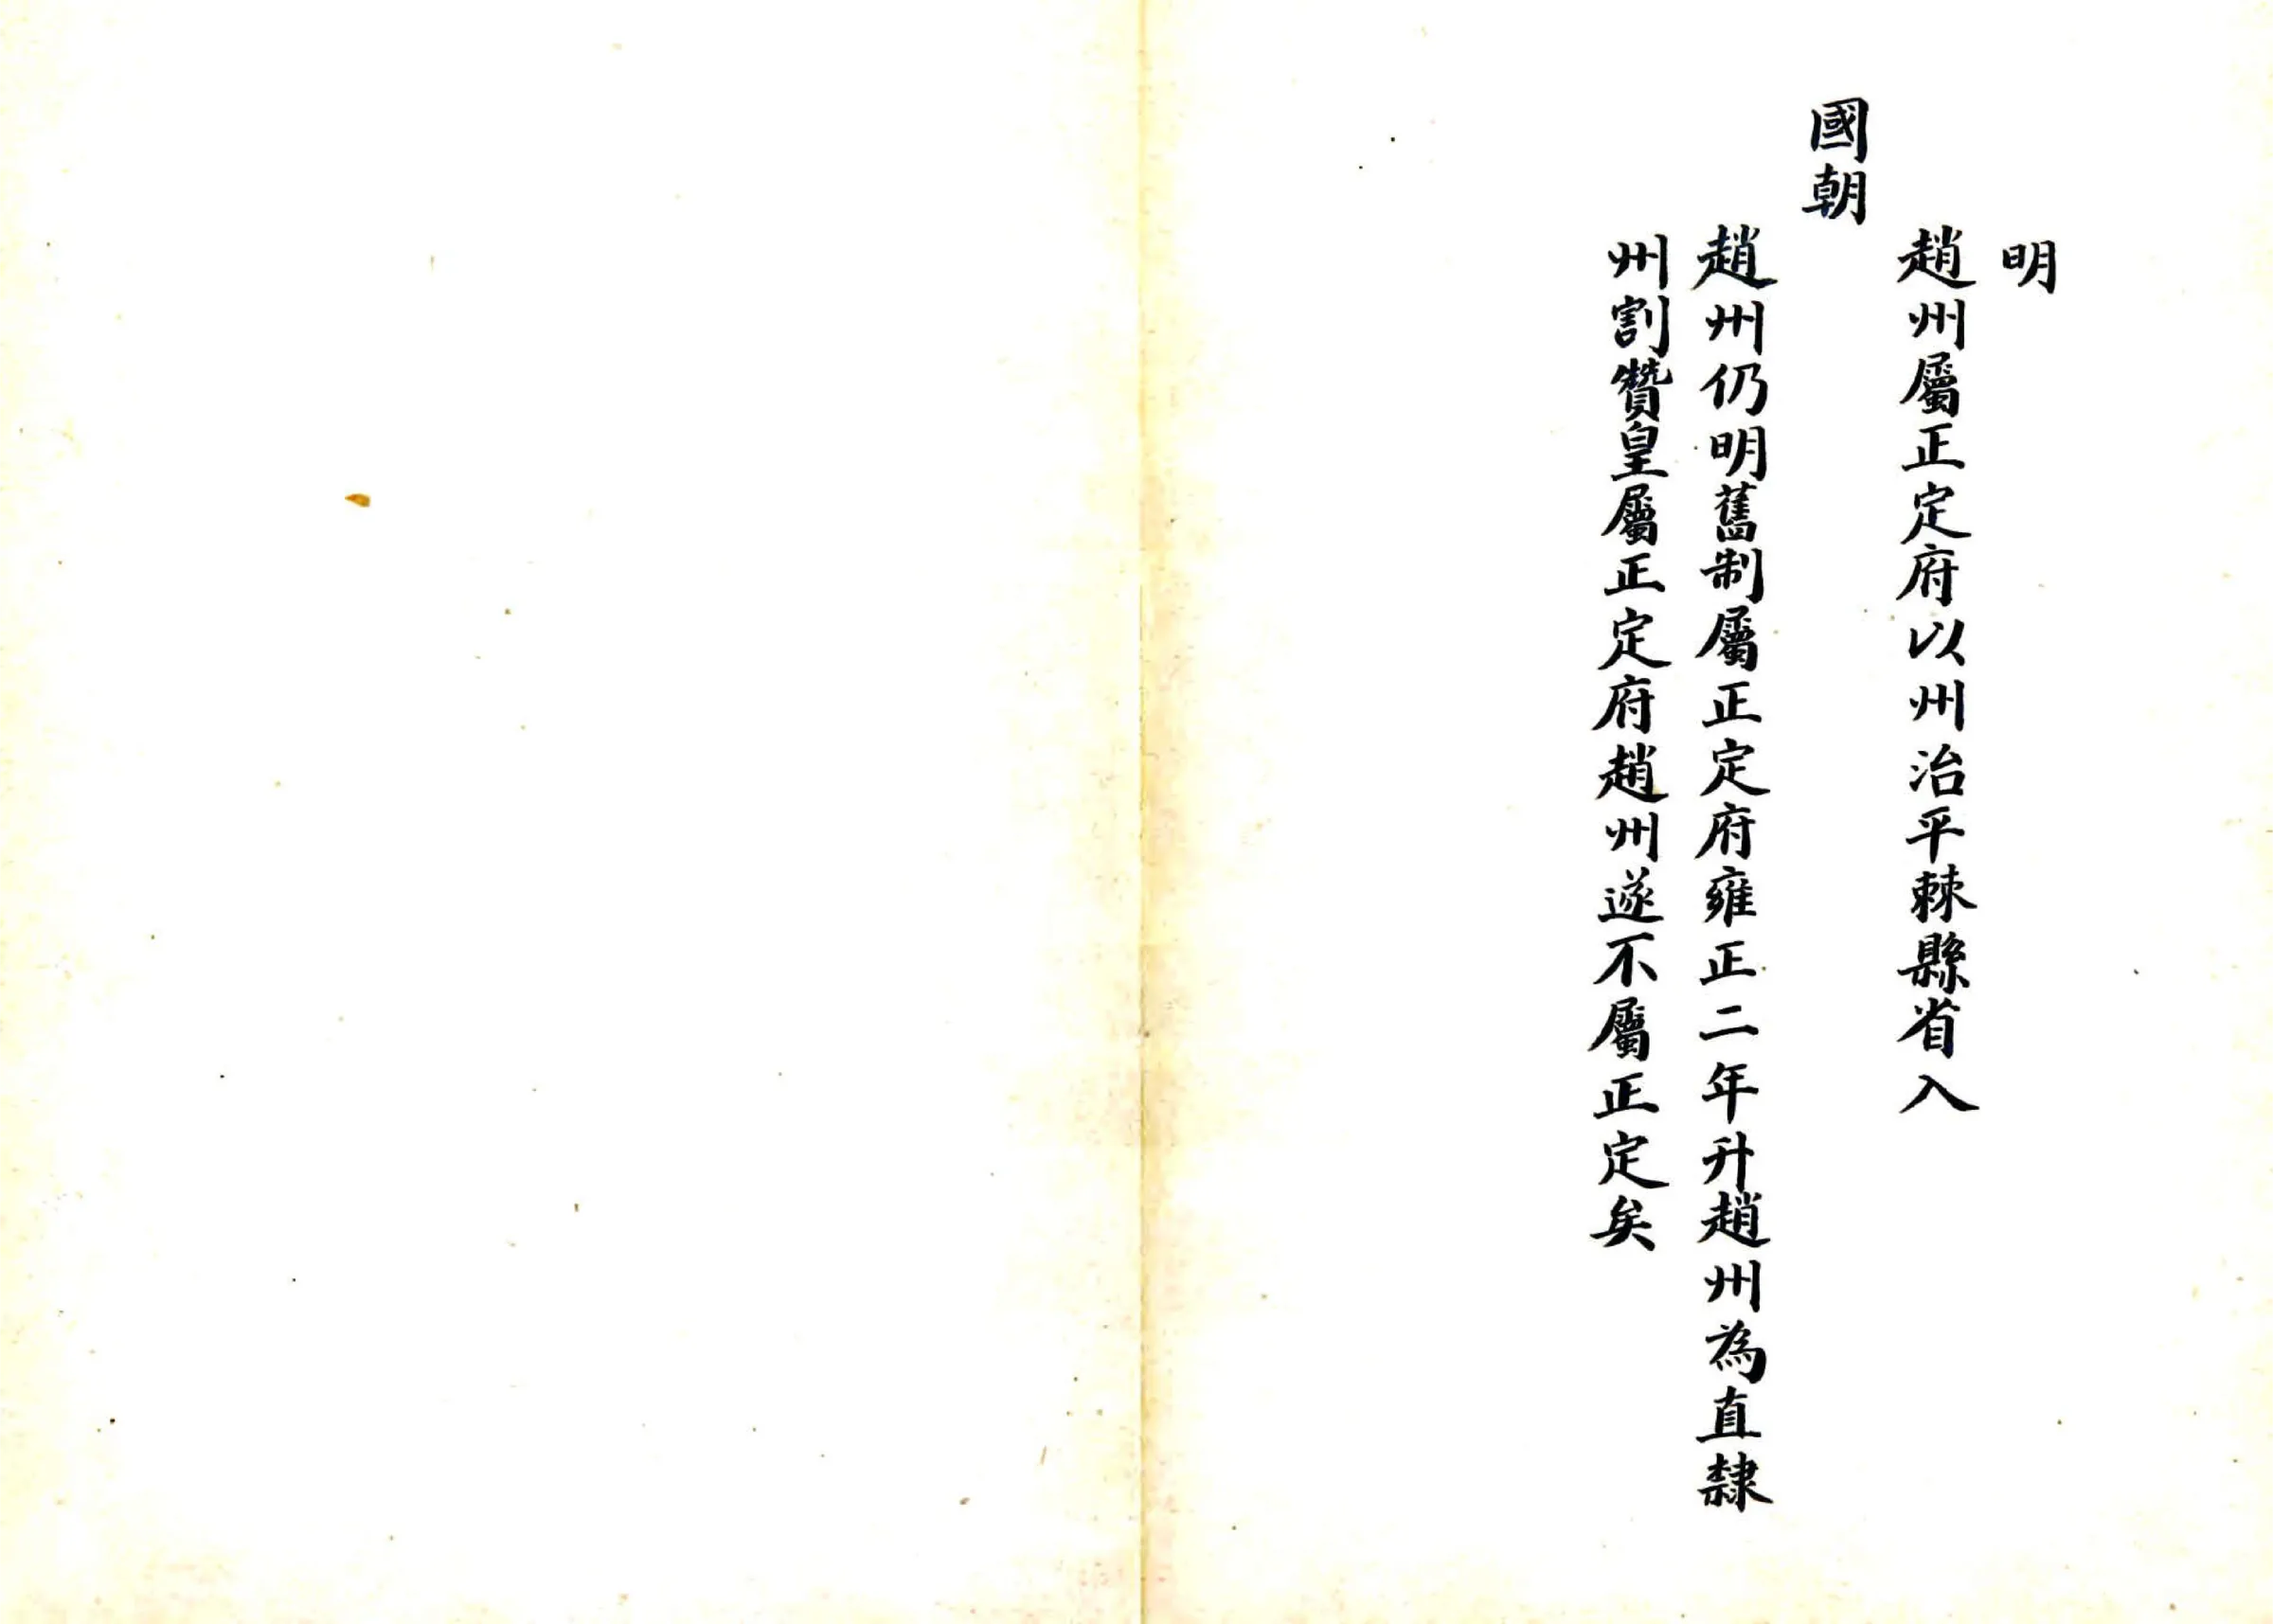 明
趙州屬正定府以州治平棘縣省入
國朝
趙州仍明舊制屬正定府雍正二年升趙州為直隸
州割贊皇屬正定府趙州遂不屬正定矣